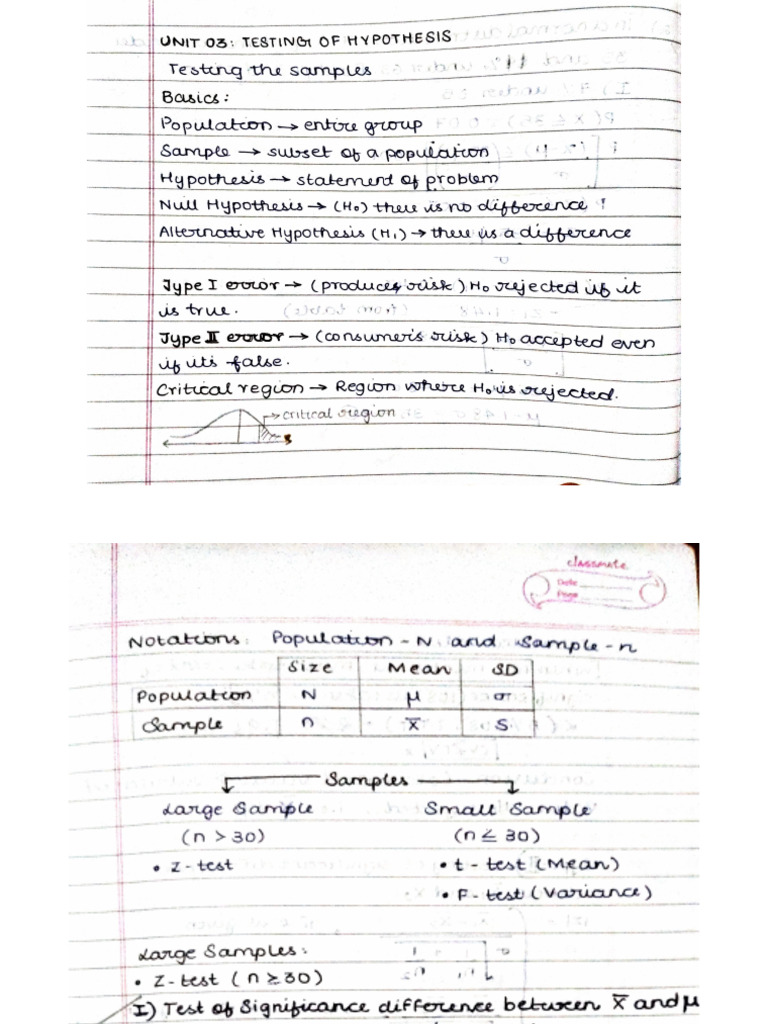 UNIT 03: TESTING OF HYPOTHESIS
Testing the samples
Basics:
Population → entire group
Sample → subset of a population
Hypothesis → statement of problem
Null Hypothesis → (H₀) there is no difference
Alternative Hypothesis (H₁) → there is a difference
Type I error → (producers risk) H₀ rejected if it
is true.
Type II error → (consumer's risk) H₀ accepted even
if its false.
Critical region → Region where H₀ is rejected.
→ critical region
classmate
Date
Page
Notations: Population - N and Sample - n
Size Mean SD
Population N μ σ
Sample n x̄ S
Samples
Large Sample Small Sample
(n > 30) (n ≤ 30)
• Z-test • t-test (Mean)
• F-test (Variance)
Large Samples:
• Z-test (n ≥ 30)
I) Test of Significance difference between x̄ and μ